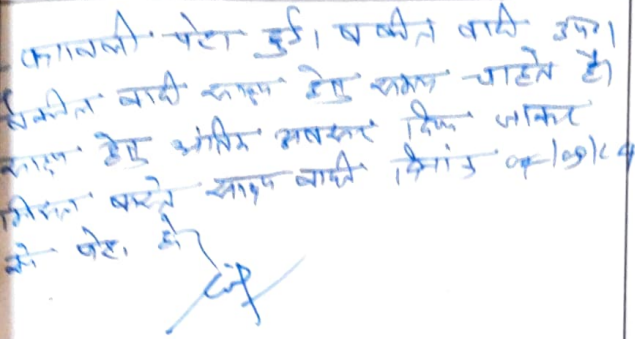 पत्रावली पेश हुई। वकील वादी उप०।
वकील वादी साक्ष्य हेतु समय चाहते है।
साक्ष्य हेतु अंतिम अवसर दिया जाकर
मिसल वास्ते साक्ष्य वादी दिनांक
को पेश हो